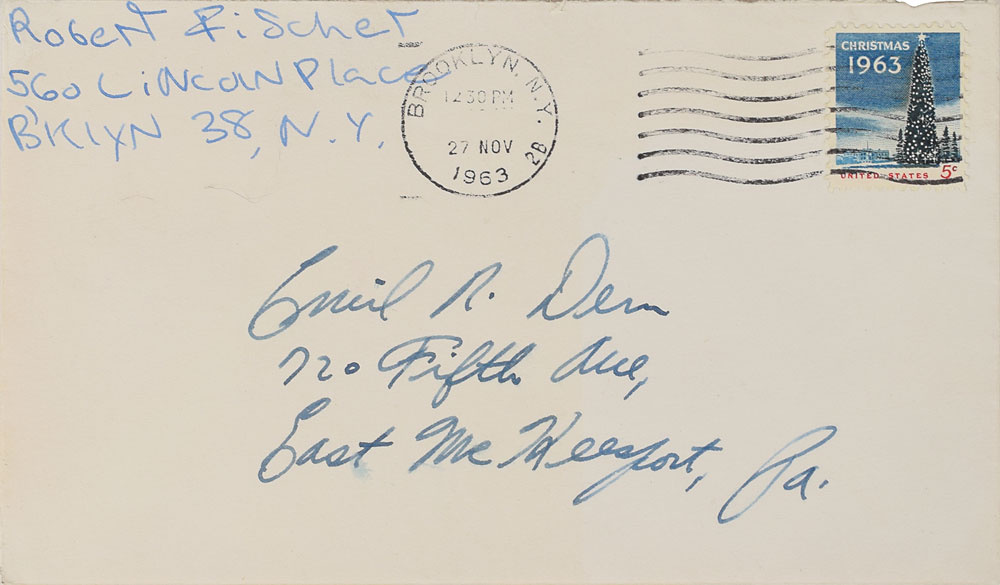 Robert Fischer
560 Lincoln Place
B'KLYN 38, N.Y.
BROOKLYN, N.Y.
12 30 PM
27 NOV
1963
2B
CHRISTMAS
1963
UNITED STATES 5c
Emil R. Dern
720 Fifth Ave,
East McKeesport, Pa.